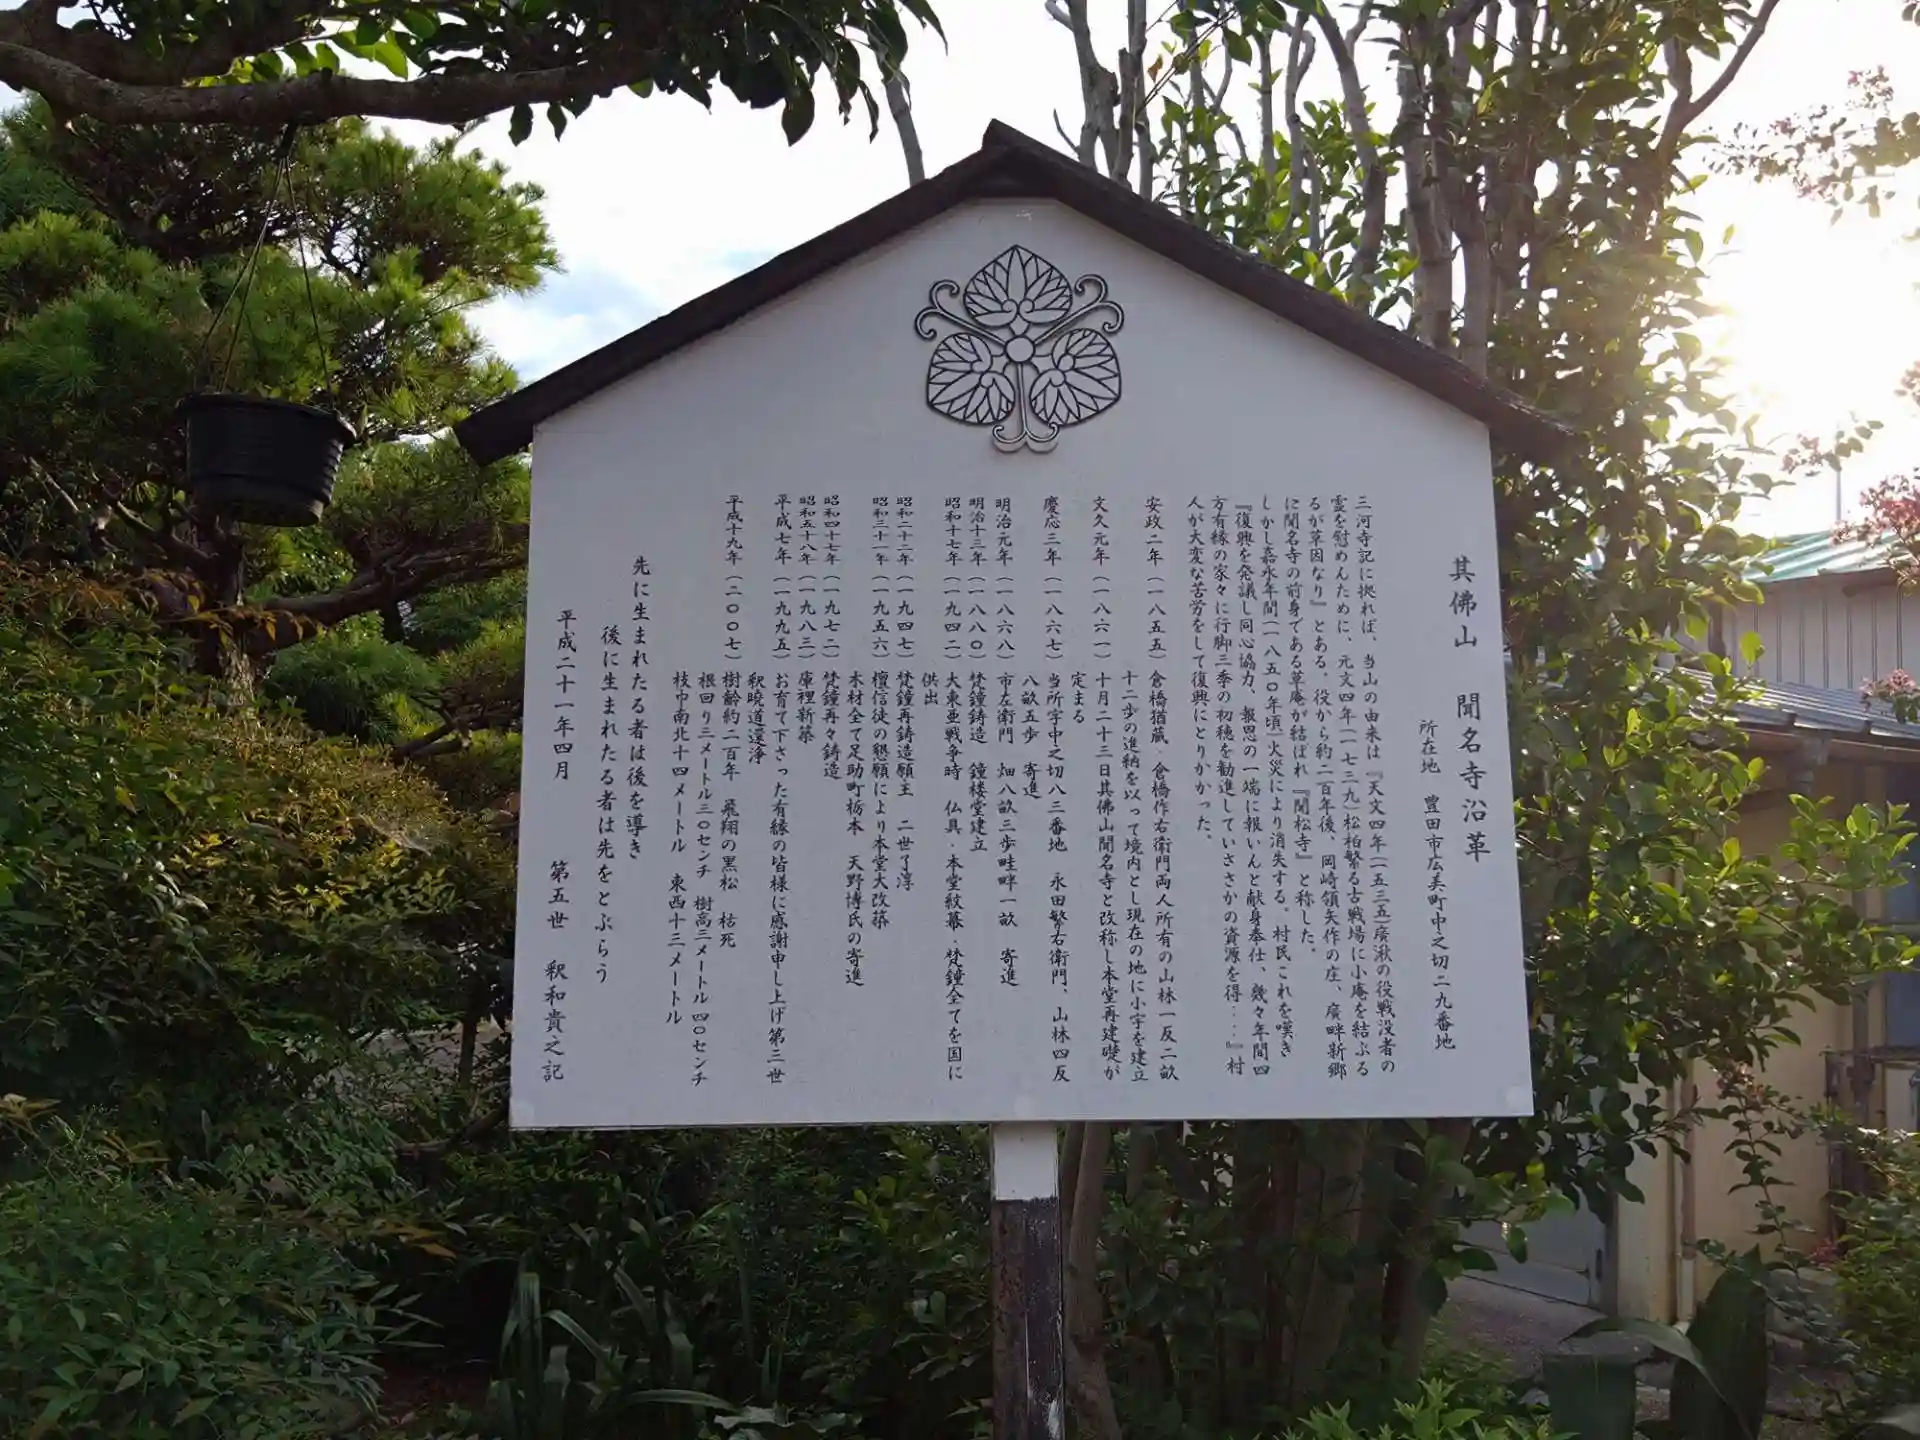 其佛山　聞名寺沿革
所在地　豊田市広美町中之切二九番地
三河寺記に拠れば、当山の由来は『天文四年(一五三五)廣湫の役戦没者の
霊を慰めんために、元文四年(一七三九)松柏繁る古戦場に小庵を結ぶる
るが草因なり』とある。役から約二百年後、岡崎領矢作の庄、廣畔新郷
に聞名寺の前身である草庵が結ばれ『聞松寺』と称した。
しかし嘉永年間(一八五〇年頃)火災により消失する。村民これを嘆き
『復興を発議し同心協力、報恩の一端に報いんと献身奉仕、幾々年間四
方有縁の家々に行脚三季の初穂を勧進していささかの資源を得・・・』村
人が大変な苦労をして復興にとりかかった。
安政二年（一八五五）倉橋猶蔵、倉橋作右衛門両人所有の山林一反二畝
十二歩の進納を以って境内とし現在の地に小宇を建立
文久元年（一八六一）十月二十三日其佛山聞名寺と改称し本堂再建礎が
定まる
慶応三年（一八六七）当所字中之切八三番地　永田繁右衛門、山林四反
八畝五歩　寄進
明治元年（一八六八）市左衛門　畑八畝三歩畦畔一畝　寄進
明治十三年（一八八〇）梵鐘鋳造　鐘楼堂建立
昭和十七年（一九四二）大東亜戦争時　仏具・本堂紋幕・梵鐘全てを国に
供出
昭和二十二年（一九四七）梵鐘再鋳造願主　二世了淳
昭和三十一年（一九五六）檀信徒の懇願により本堂大改築
木材全て足助町栃本　天野博氏の寄進
昭和四十七年（一九七二）梵鐘再々鋳造
昭和五十八年（一九八三）庫裡新築
平成七年（一九九五）お育て下さった有縁の皆様に感謝申し上げ第三世
釈暁道還浄
平成十九年（二〇〇七）樹齢約二百年　飛翔の黒松　枯死
根回り三メートル三〇センチ　樹高三メートル四〇センチ
枝巾南北十四メートル　東西十三メートル
先に生まれたる者は後を導き
後に生まれたる者は先をとぶらう
平成二十一年四月　第五世　釈和貴之記